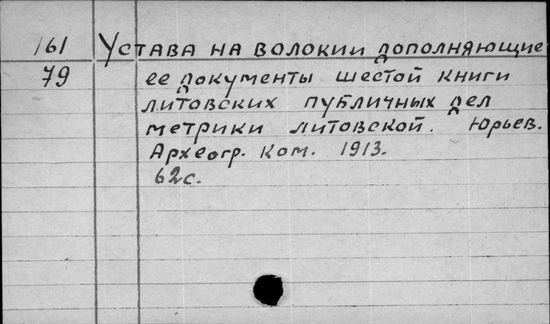 161 Устава на волокии дополняющие
79 ее документы шестой книги
литовских публичных дел
метрики литовской. Юрьев.
Археогр. Ком. 1913.
62с.